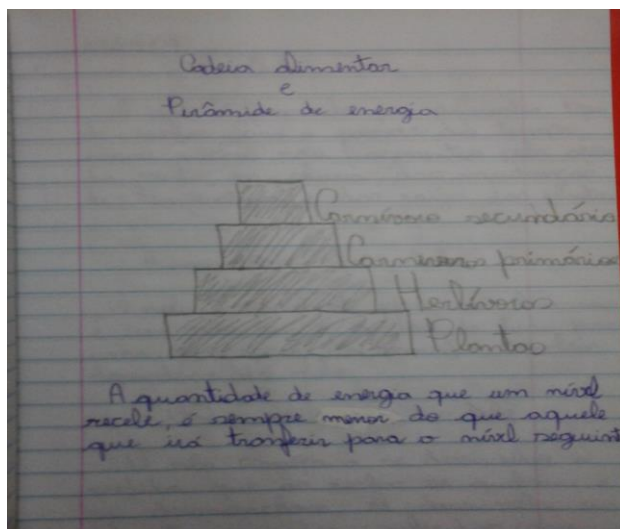 Cadeia alimentar
e
Pirâmide de energia
Carnívoro secundário
Carnívoros primários
Herbívoros
Plantas
A quantidade de energia que um nível
recebe, é sempre menor do que aquele
que irá tranferir para o nível seguint